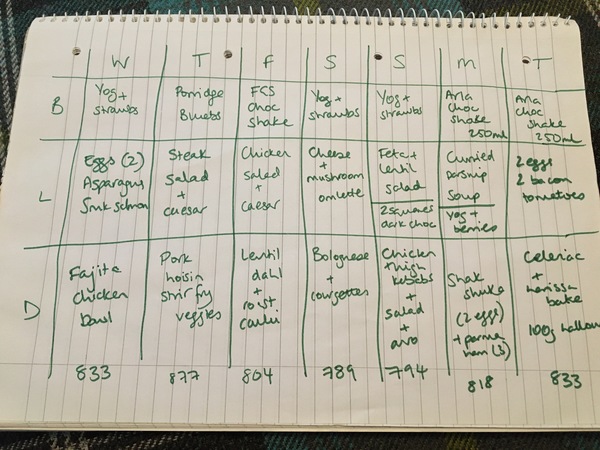 W T F S S M T
B
Yog +
strawbs
Porridge
Bluebs
FCS
choc
shake
Yog +
strawbs
Yog +
strawbs
Arla
choc
shake
250ml
Arla
choc
shake
250ml
L
Eggs (2)
Asparagus
Smk salmon
Steak
salad
+
caesar
Chicken
salad
+
caesar
Cheese
+
mushroom
omlette
Feta +
lentil
salad
2 squares
dark choc
Curried
parsnip
soup
Yog +
berries
2 eggs
2 bacon
tomatoes
D
Fajita
chicken
bowl
Pork
hoisin
stir fry
veggies
Lentil
dahl
+
roast
cauli
Bolognese
+
courgettes
Chicken
thigh
kebabs
+
salad
+
avo
Shak
shuka
(2 eggs)
+ parma
ham (3)
Celeriac
+
harissa
bake
100g
833 877 804 789 794 818 833